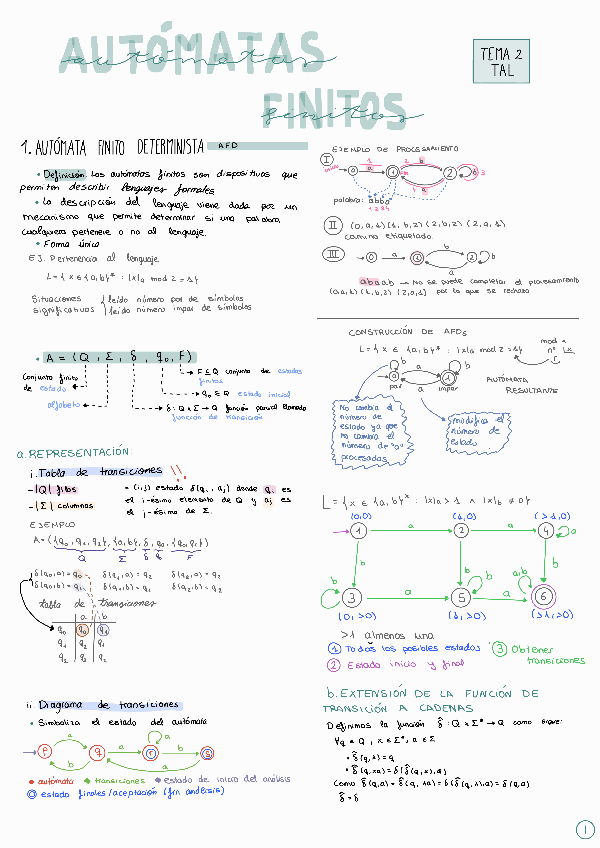 AUTÓMATAS
autómatas
FINITOS
finitos
TEMA 2
TAL
1. AUTÓMATA FINITO DETERMINISTA AFD
• Definición Los autómatas finitos son dispositivos que
permiten describir lenguajes formales
• La descripción del lenguaje viene dada por un
mecanismo que permite determinar si una palabra
cualquiera pertenece o no al lenguaje.
• Forma única
EJ. Pertenencia al lenguaje
L = { x ∈ {a,b}* : |x|a mod 2 = 1}
Situaciones { leído número par de símbolos
significativas { leído número impar de símbolos
• A = (Q, Σ, δ, q₀, F)
F ⊆ Q conjunto de estados
finitos
Conjunto finito
de estado
q₀ ∈ Q estado inicial
alfabeto
δ: Q x Σ → Q función parcial llamada
función de transición
a. REPRESENTACIÓN:
i. Tabla de transiciones !!
- |Q| filas
- |Σ| columnas
= (i,j) estado δ(qi, aj) donde qi es
el i-ésimo elemento de Q y aj es
el j-ésimo de Σ.
EJEMPLO
A = ({q₀, q₁, q₂}, {a,b}, δ, q₀, {q₀, q₁})
Q Σ δ q₀ F
δ(q₀,a) = q₀ δ(q₁,a) = q₂ δ(q₂,a) = q₂
δ(q₀,b) = q₁ δ(q₁,b) = q₁ δ(q₂,b) = q₂
tabla de transiciones
a b
q₀ q₀ q₁
q₁ q₂ q₁
q₂ q₂ q₂
ii Diagrama de transiciones
• Simboliza el estado del autómata
a a a
p q r s
b a b b
• autómata • transiciones • estado de inicio del análisis
estado finales/aceptación (fin análisis)
EJEMPLO DE PROCESAMIENTO
I
inicio 0 1 a 1 fin 2 b 2 b 3
4 a
palabra: abba
1 2 3 4
II (0,a,1)(1,b,2)(2,b,2)(2,a,1)
camino etiquetado.
III 0 a 1 b 2 b
a
abaab → No se puede completar el procesamiento
(0,a,1)(1,b,2)(2,a,1) por lo que se rechaza
CONSTRUCCIÓN DE AFDs
L = { x ∈ {a,b}* : |x|a mod 2 = 1}
b a b
0 1
par a impar
AUTÓMATA
RESULTANTE
No cambia el
número de
estado ya que
no cambia el
número de "a"
procesadas
modifica el
número de
estado
L = { x ∈ {a,b}* : |x|a > 1 ∧ |x|b ≠ 0}
(0,0) (1,0) (>1,0)
1 a 2 a 4 a
b b b
b b a,b
3 a 5 a 6
(0,>0) (1,>0) (>1,>0)
>1 almenos una
1 Todos los posibles estados
2 Estado inicio y final
3 Obtener
transiciones
b. EXTENSIÓN DE LA FUNCIÓN DE
TRANSICIÓN A CADENAS
Definimos la función δ̂: Q x Σ* → Q como sigue:
∀q ∈ Q, x ∈ Σ*, a ∈ Σ
• δ̂(q,λ) = q
• δ̂(q,xa) = δ(δ̂(q,x),a)
Como δ̂(q,a) = δ̂(q,λa) = δ(δ̂(q,λ),a) = δ(q,a)
δ̂ = δ
1